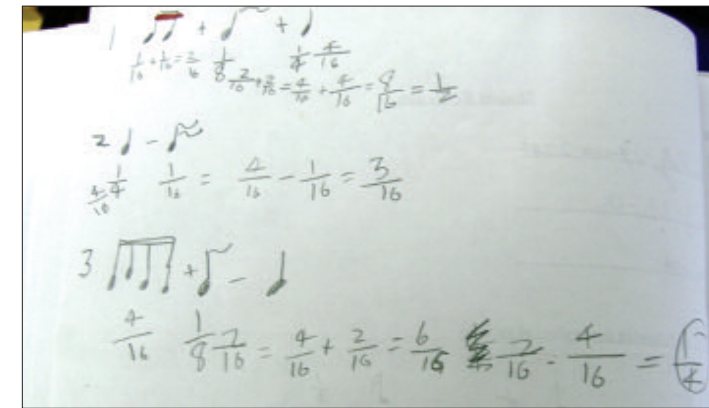 1 ♫ + ♪ + ♩
1/16 + 1/16 = 2/16 1/8 2/16 + 2/16 = 4/16 + 1/4 4/16 = 8/16 = 1/2
2 ♩ - ♬
4/16 1/4 1/16 = 4/16 - 1/16 = 3/16
3 ♬♬ + ♪ - ♩
4/16 1/8 2/16 = 4/16 + 2/16 = 6/16 2/16 - 4/16 = 1/4